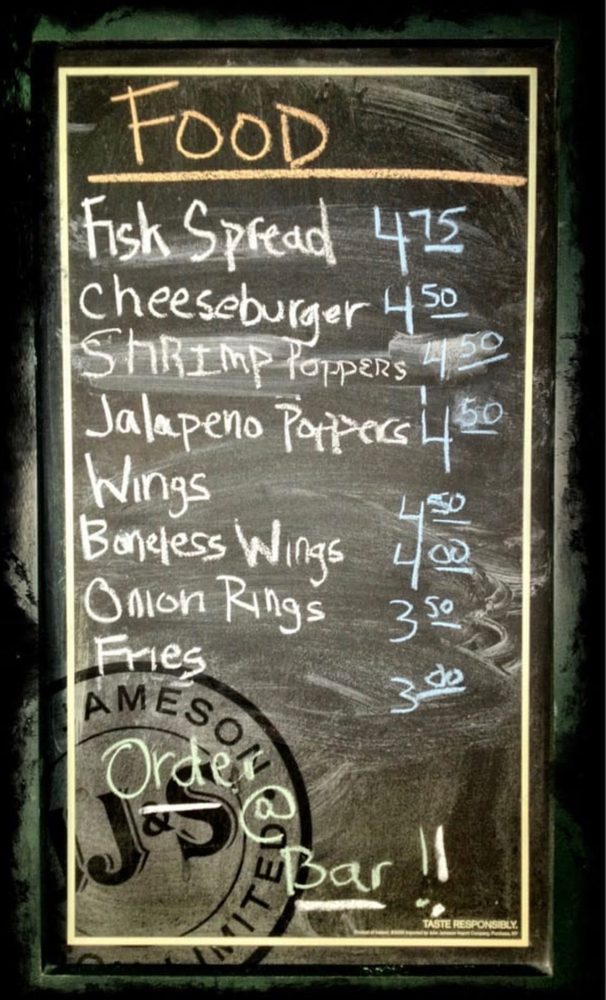 FOOD
Fish Spread 4 75
cheeseburger 4 50
SHRIMP POPPERS 4 50
Jalapeno Poppers 4 50
Wings 4 50
Boneless Wings 4 00
Onion Rings 3 50
Fries 3 00
JAMESON
J&S
LIMITED
Order
@
Bar !!
TASTE RESPONSIBLY.